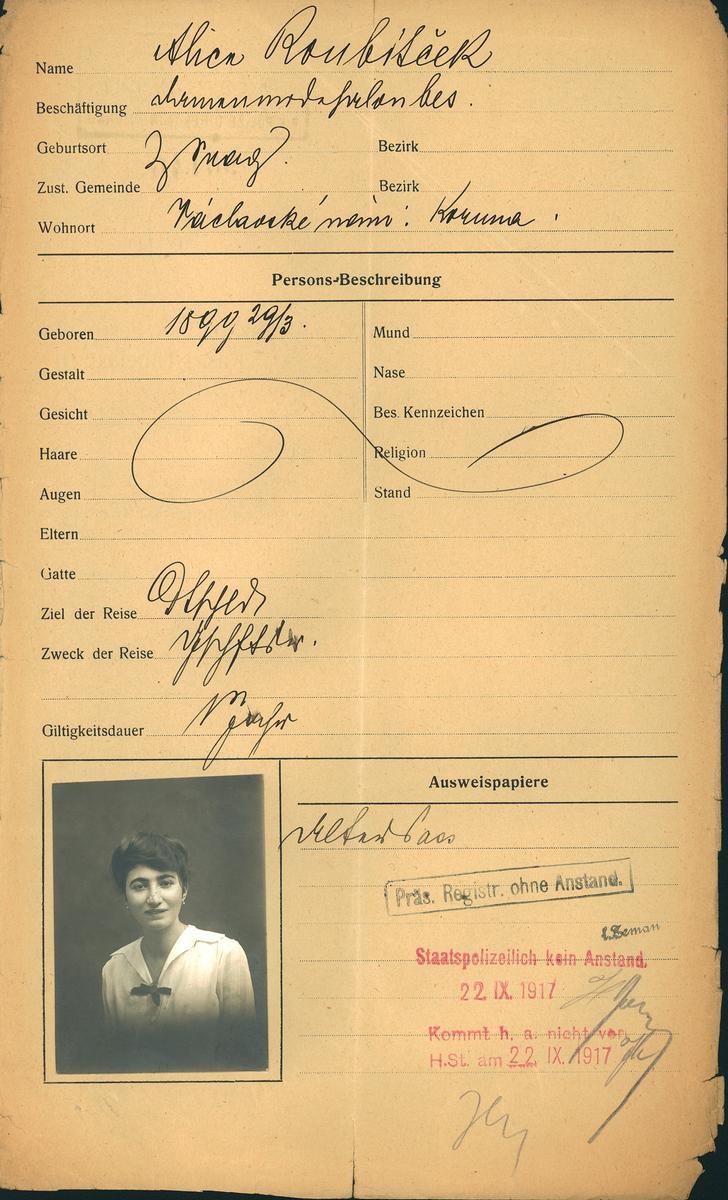 Name Alice Roubíček
Beschäftigung
Geburtsort Prag Bezirk
Zust. Gemeinde Bezirk
Wohnort Václavské nám: Koruna.
Persons-Beschreibung
Geboren 1899 29/3. Mund
Gestalt Nase
Gesicht Bes. Kennzeichen
Haare Religion
Augen Stand
Eltern
Gatte
Ziel der Reise
Zweck der Reise
Giltigkeitsdauer
Ausweispapiere
Alter Pass
Präs. Registr. ohne Anstand.
Zeman
Staatspolizeilich kein Anstand.
22. IX. 1917
Kommt h. a. nicht vor.
H.St. am 22. IX. 1917